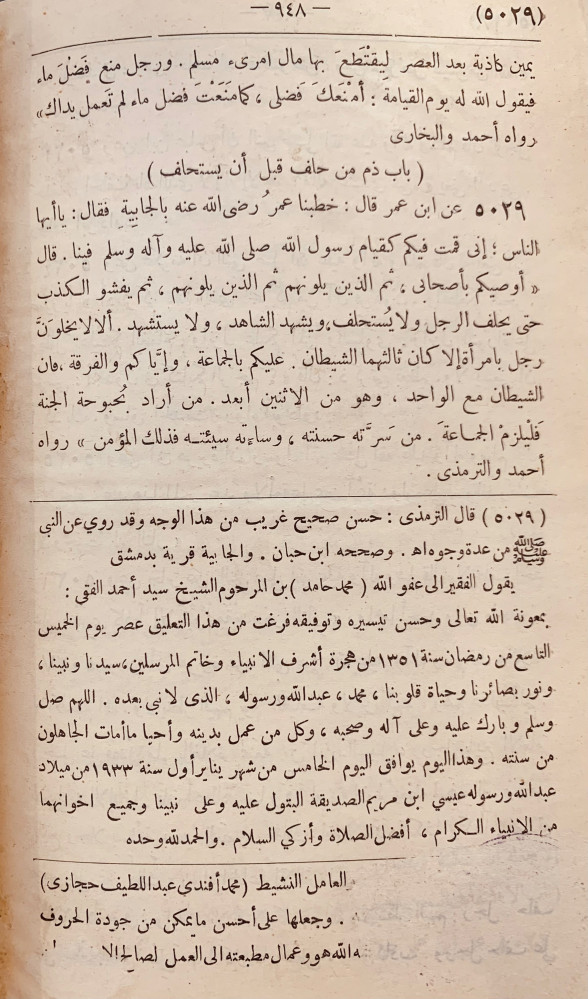 (٥٠٢٩)
— ٩٤٨ —
يمين كاذبة بعد العصر لِيقْتَطَعَ بها مال امرىء مسلم . ورجل منع فَضْلَ ماء
فيقول الله له يوم القيامة : أمْنَعكَ فَضلى ، كما مَنَعْتَ فضل ماء لم تَعمل يداك»
رواه أحمد والبخارى
( باب ذم من حلف قبل أن يستحلف )
٥٠٢٩ عن ابن عمر قال : خطبنا عمرُ رضى الله عنه بالجابيةِ فقال : ياأيها
الناس ؛ إنى قمت فيكم كقيام رسول الله صلى الله عليه وآله وسلم فينا . قال
« أوصيكم بأصحابى ، ثم الذين يلونهم ثم الذين يلونهم ، ثم يفشو الكذب
حتى يحلف الرجل ولا يُستحلف، ويشهد الشاهد ، ولا يستشهد . ألا لا يخلوَنَّ
رجل بامرأة إلا كان ثالثهما الشيطان . عليكم بالجماعة ، وإيَّاكم والفرقة ، فان
الشيطان مع الواحد ، وهو من الاثنين أبعد . من أراد بُحبوحة الجنة
فَلْيلزمْ الجماعةَ . من سَرَّته حسنته ، وساءته سيئته فذلك المؤمن » رواه
أحمد والترمذى .
( ٥٠٢٩ ) قال الترمذى : حسن صحيح غريب من هذا الوجه وقد روي عن النبى
ﷺ من عدة وجوه اهـ . وصححه ابن حبان . والجابية قرية بدمشق
يقول الفقير الى عفو الله ( محمد حامد ) بن المرحوم الشيخ سيد أحمد الفقى :
بمعونة الله تعالى وحسن تيسيره وتوفيقه فرغت من هذا التعليق عصر يوم الخميس
التاسع من رمضان سنة ١٣٥١ من هجرة أشرف الانبياء وخاتم المرسلين، سيدنا ونبينا ،
ونور بصائرنا وحياة قلوبنا ، محمد ، عبد الله ورسوله ، الذى لا نبى بعده . اللهم صل
وسلم وبارك عليه وعلى آله وصحبه ، وكل من عمل بدينه وأحيا ما أمات الجاهلون
من سنته . وهذا اليوم يوافق اليوم الخامس من شهر يناير أول سنة ١٩٣٣ من ميلاد
عبد الله ورسوله عيسي ابن مريم الصديقة البتول عليه وعلى نبينا وجميع اخوانهما
من الانبياء الكرام ، أفضل الصلاة وأزكي السلام . والحمد لله وحده
العامل النشيط (محمد أفندى عبد اللطيف حجازى)
. وجعلها على أحسن ما يمكن من جودة الحروف
ه الله هو وعمال مطبعته الى العمل لصالح الا